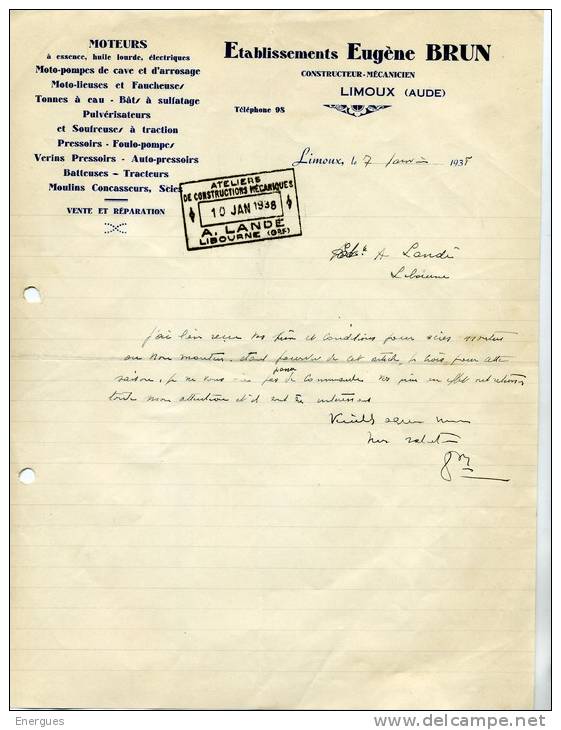 MOTEURS
à essence, huile lourde, électriques
Moto-pompes de cave et d'arrosage
Moto-lieuses et Faucheuses
Tonnes à eau - Bâts à sulfatage
Pulvérisateurs
et Soufreuses à traction
Pressoirs - Foulo-pompes
Verins Pressoirs - Auto-pressoirs
Batteuses - Tracteurs
Moulins Concasseurs, Scies
VENTE ET RÉPARATION
Etablissements Eugène BRUN
CONSTRUCTEUR-MÉCANICIEN
LIMOUX (AUDE)
Téléphone 98
Limoux, le 7 Janvier 1938
ATELIERS
DE CONSTRUCTIONS MÉCANIQUES
10 JAN 1938
A. LANDÉ
LIBOURNE (GDE)
A Landé
Libourne
j'ai bien reçu vos et conditions pour scies montées
ou non montées, étant pourvu de cet article, je crois, pour cette
saison, je ne vous pas passer de commandes vos prix en effet
toute mon attention et
Veuillez agréer
mes salutations
Energues
www.delcampe.net